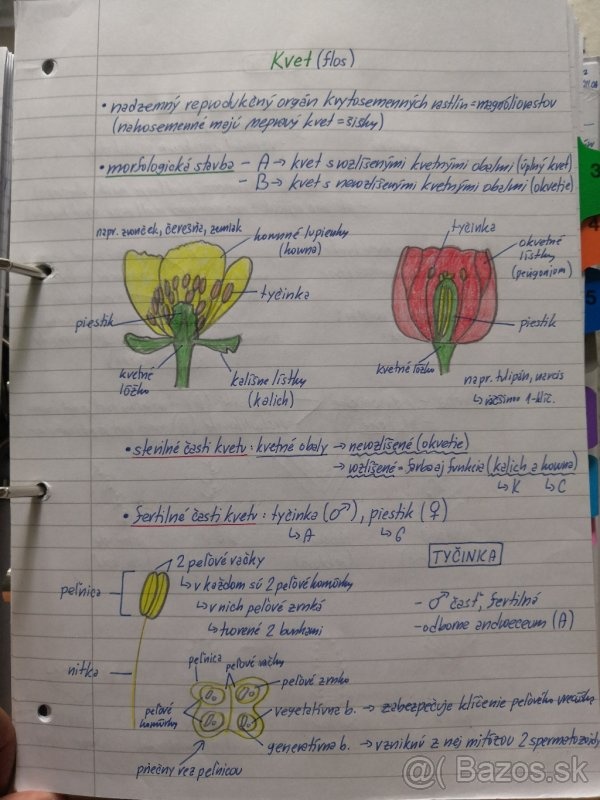 Kvet (flos)
• nadzemný reprodukčný orgán krytosemenných rastlín = magnóliorastov
(nahosemenné majú nepravý kvet = šišky)
• morfologická stavba - A → kvet s rozlíšenými kvetnými obalmi (úplný kvet)
- B → kvet s nerozlíšenými kvetnými obalmi (okvetie)
napr. zvonček, čerešňa, zemiak
korunné lupienky
(koruna)
tyčinka
piestik
kvetné
lôžko
kališné lístky
(kalich)
tyčinka
okvetné
lístky
(perigonium)
piestik
kvetné lôžko
napr. tulipán, narcis
↳ väčšinou 1-klíč.
• sterilné časti kvetu: kvetné obaly → nerozlíšené (okvetie)
→ rozlíšené = farba aj funkcia (kalich a koruna)
↳ K ↳ C
• fertilné časti kvetu: tyčinka (♂), piestik (♀)
↳ A ↳ G
TYČINKA
2 peľové vačky
peľnica
↳ v každom sú 2 peľové komôrky
↳ v nich peľové zrnká
↳ tvorené 2 bunkami
- ♂ časť, fertilná
- odborne androeceum (A)
nitka
peľnica
peľové vačky
peľové zrnko
peľové
komôrky
vegetatívna b. → zabezpečuje klíčenie peľového vrecúška
generatívna b. → vzniknú z nej mitózou 2 spermatozoidy
priečny rez peľnicou
3
4
5
@( Bazos.sk